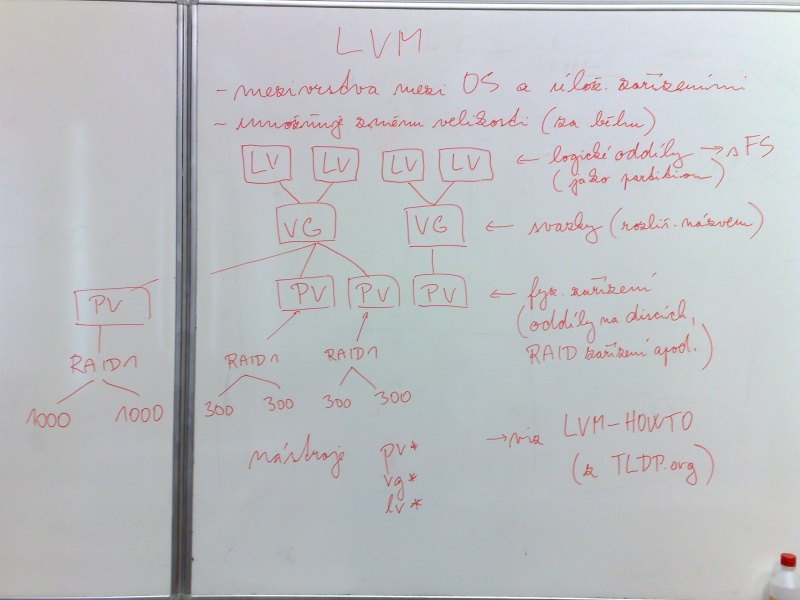 LVM
- mezivrstva mezi OS a úlož. zařízeními
- umožňuje změnu velikosti (za běhu)
LV LV LV LV ← logické oddíly → FS
(jako partition)
VG VG ← svazky (rozliš. názvem)
PV PV PV PV ← fyz. zařízení
(oddíly na discích,
RAID zařízení apod.)
RAID1 RAID1 RAID1
1000 1000 300 300 300 300
nástroje pv* → viz LVM-HOWTO
vg* (z TLDP.org)
lv*